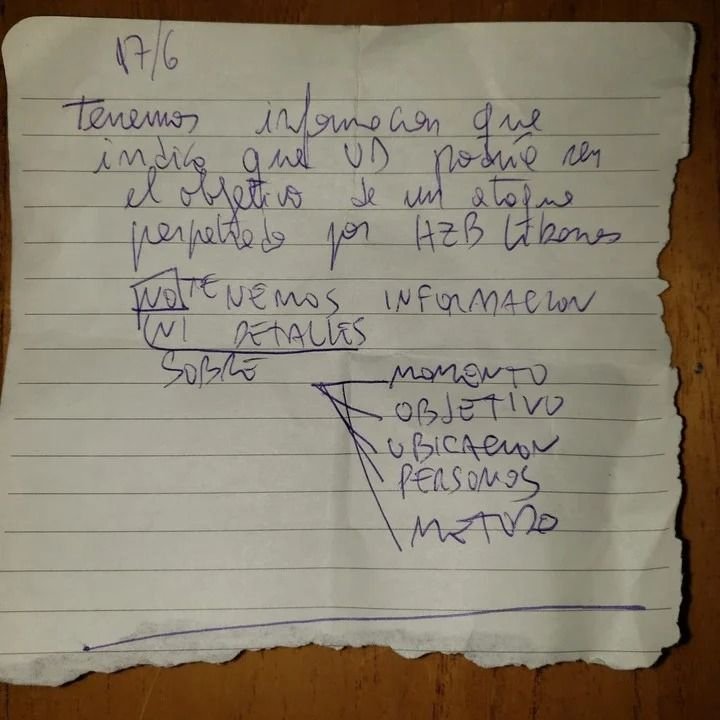 17/6
Tenemos informacion que
indica que UD podria ser
el objetivo de un ataque
perpetrado por HZB Libanes
NO TENEMOS INFORMACION
NI DETALLES
SOBRE
MOMENTO
OBJETIVO
UBICACION
PERSONAS
METODO